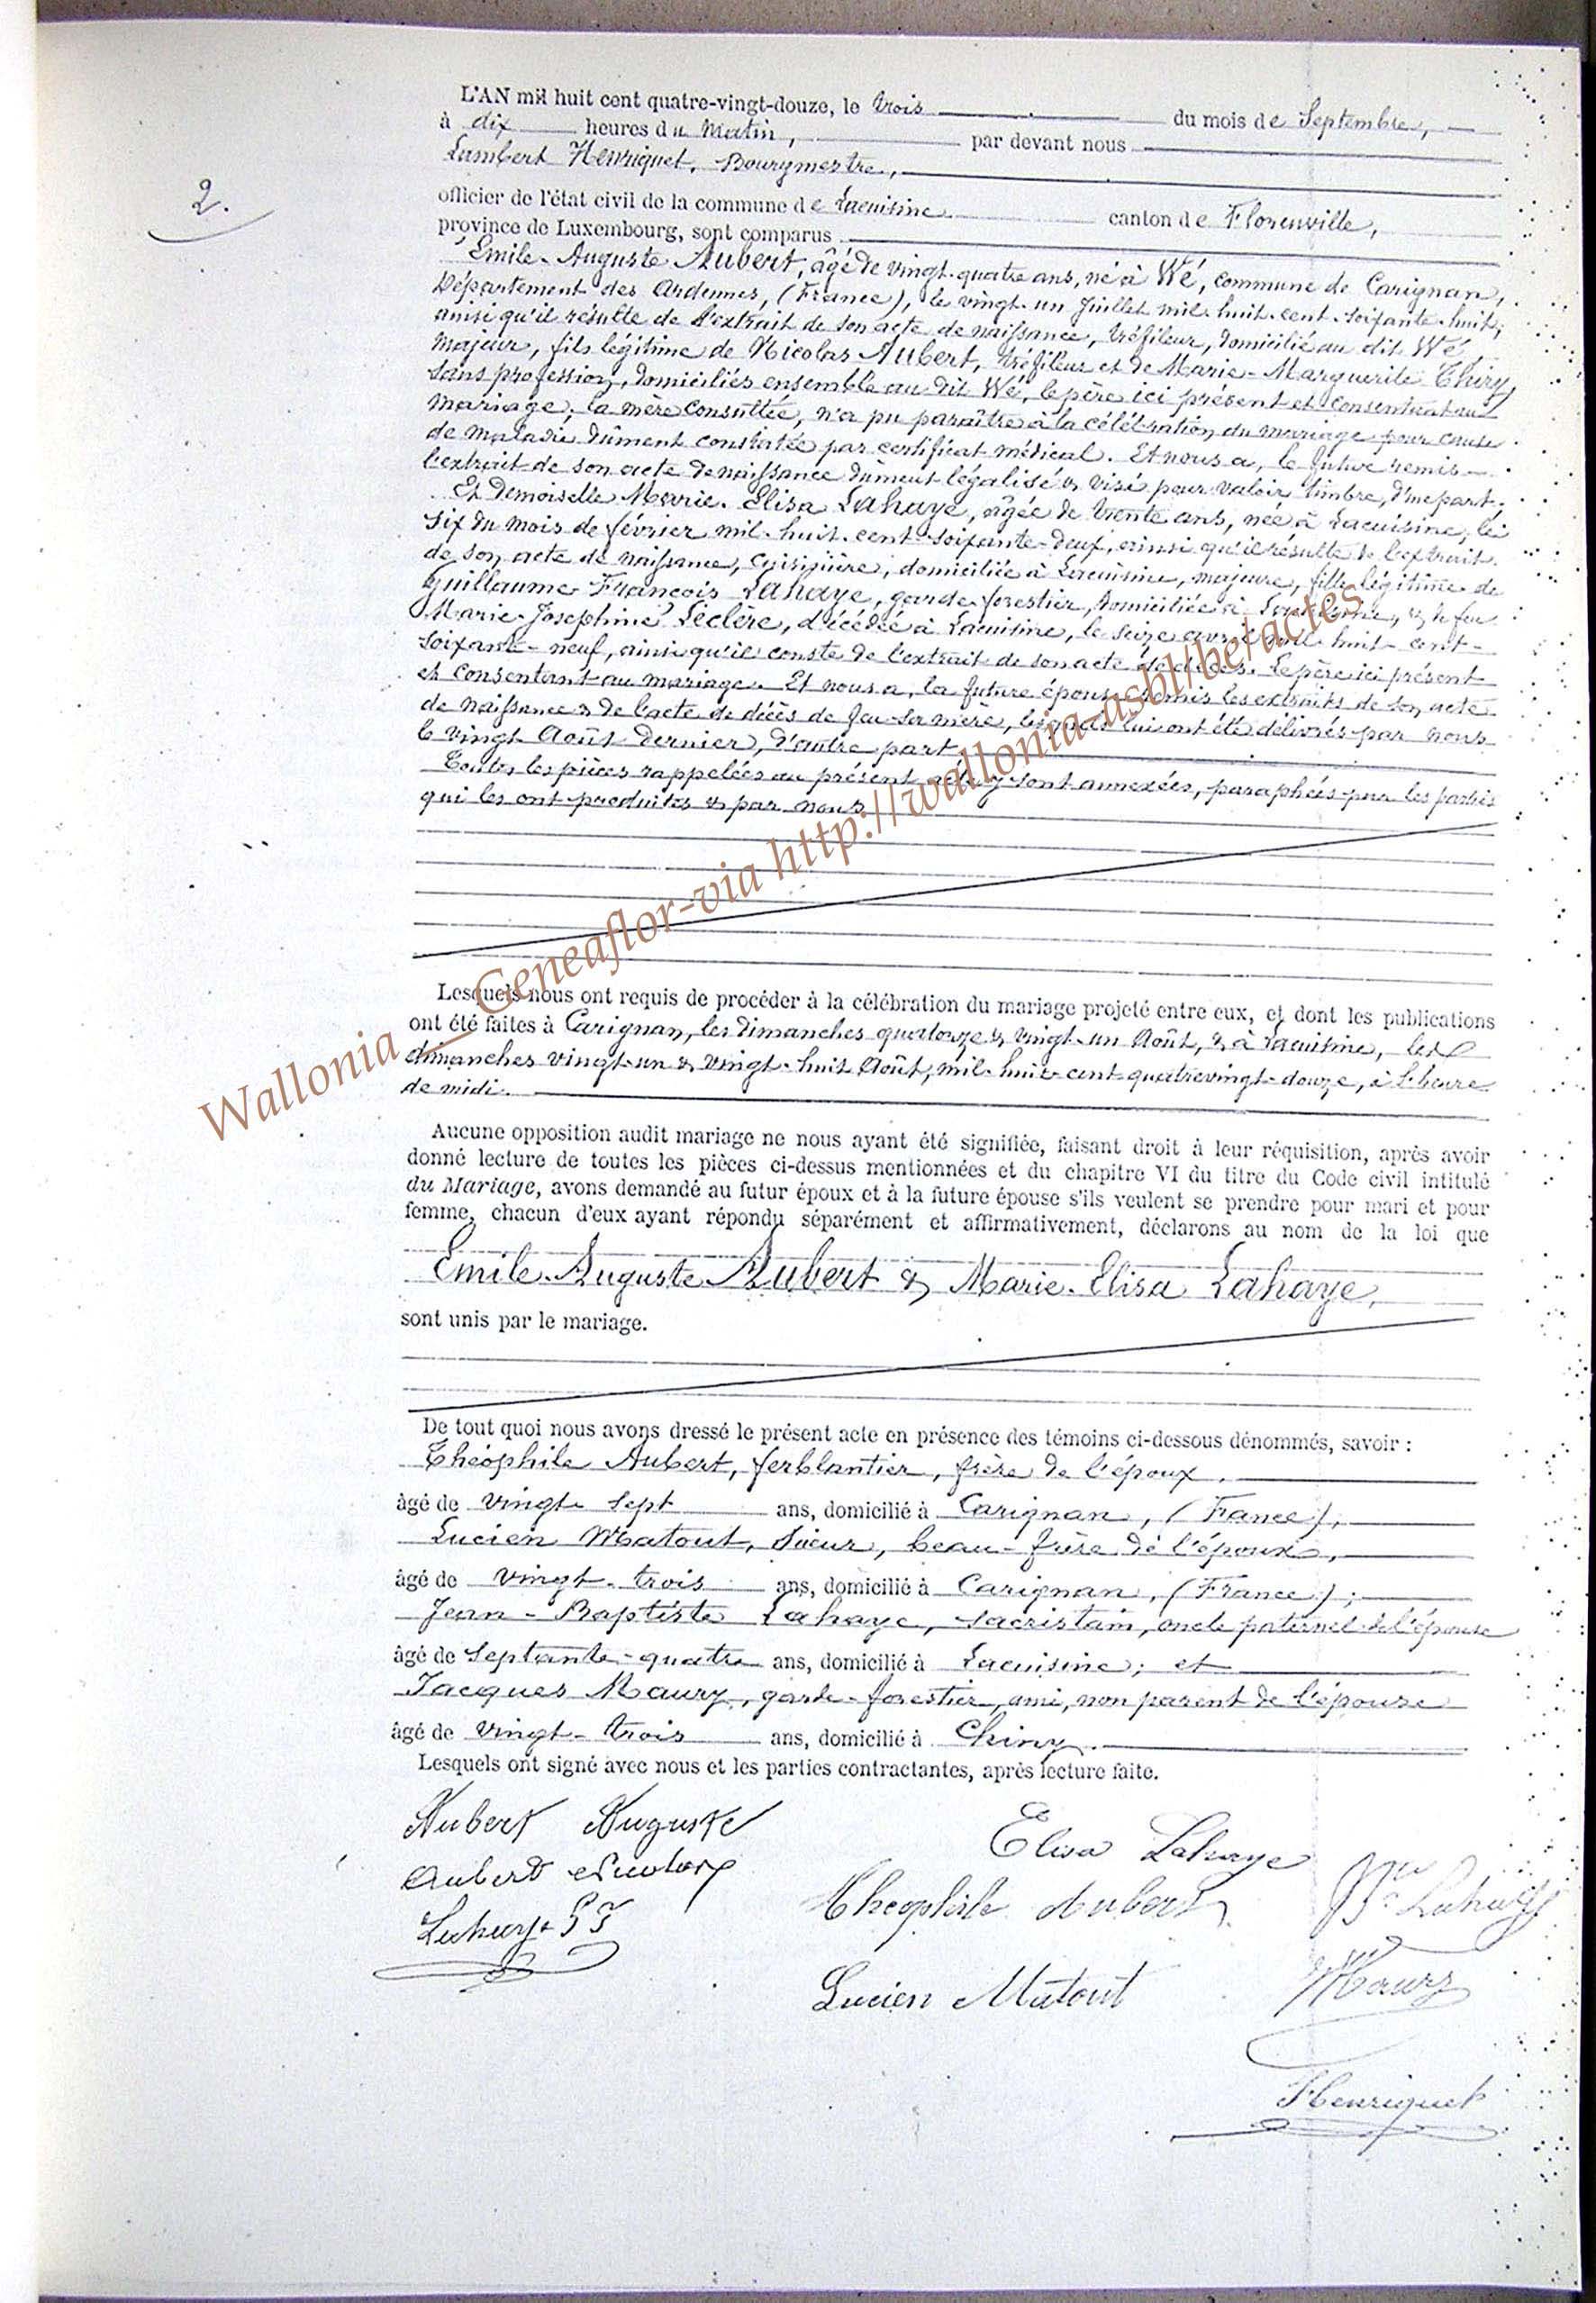 2.
L'AN mil huit cent quatre-vingt-douze, le trois du mois de Septembre,
à dix heures du matin, par devant nous
Lambert Henriquet, Bourgmestre,
officier de l'état civil de la commune de Lacuisine canton de Florenville,
province de Luxembourg, sont comparus
Emile-Auguste Aubert, âgé de vingt-quatre ans, né à Wé, commune de Carignan,
Département des Ardennes, (France), le vingt-un Juillet mil-huit-cent-soixante-huit,
ainsi qu'il résulte de l'extrait de son acte de naissance, tréfileur, domicilié au dit Wé,
majeur, fils légitime de Nicolas Aubert, tréfileur et de Marie-Marguerite Thiry,
sans profession, domiciliés ensemble au dit Wé, le père ici présent et consentant au
mariage; la mère consultée, n'a pu paraître à la célébration du mariage pour cause
de maladie dûment constatée par certificat médical. Et nous a, le futur remis
l'extrait de son acte de naissance dûment légalisé & visé pour valoir timbre, d'une part;
Et Demoiselle Marie-Elisa Lahaye, âgée de trente ans, née à Lacuisine, le
six du mois de février mil-huit-cent-soixante-deux, ainsi qu'il résulte de l'extrait
de son acte de naissance, cuisinière, domiciliée à Lacuisine, majeure, fille légitime de
Guillaume-François Lahaye, garde-forestier, domicilié à Lacuisine, & de feu
Marie-Josephine Leclère, décédée à Lacuisine, le seize avril mil huit-cent-
soixante-neuf, ainsi qu'il conste de l'extrait de son acte de décès. Le père ici présent
et consentant au mariage. Et nous a, la future épouse remis les extraits de son acte
de naissance & de l'acte de décès de feu sa mère, lesquels lui ont été délivrés par nous
le vingt Août dernier, d'autre part
Toutes les pièces rappelées au présent acte y sont annexées, paraphées par les parties
qui les ont produites & par nous
Lesquels nous ont requis de procéder à la célébration du mariage projeté entre eux, et dont les publications
ont été faites à Carignan, les dimanches quatorze & vingt-un Août, & à Lacuisine, les
dimanches vingt-un & vingt-huit Août, mil-huit-cent-quatrevingt-douze, à l'heure
de midi.
Aucune opposition audit mariage ne nous ayant été signifiée, faisant droit à leur réquisition, après avoir
donné lecture de toutes les pièces ci-dessus mentionnées et du chapitre VI du titre du Code civil intitulé
du Mariage, avons demandé au futur époux et à la future épouse s'ils veulent se prendre pour mari et pour
femme, chacun d'eux ayant répondu séparément et affirmativement, déclarons au nom de la loi que
Emile-Auguste Aubert & Marie-Elisa Lahaye,
sont unis par le mariage.
De tout quoi nous avons dressé le présent acte en présence des témoins ci-dessous dénommés, savoir :
Théophile Aubert, ferblantier, frère de l'époux,
âgé de vingt-sept ans, domicilié à Carignan, (France);
Lucien Matout, Scieur, beau-frère de l'époux,
âgé de vingt-trois ans, domicilié à Carignan, (France);
Jean-Baptiste Lahaye, sacristain, oncle paternel de l'épouse
âgé de septante-quatre ans, domicilié à Lacuisine; et
Jacques Maury, garde-forestier, ami, non parent de l'épouse
âgé de vingt-trois ans, domicilié à Chiny.
Lesquels ont signé avec nous et les parties contractantes, après lecture faite.
Aubert Auguste
Elisa Lahaye
Aubert Nicolas
Théophile Aubert
Lahaye
Lahaye
Lucien Matout
Maury
Henriquet
Wallonia__Geneaflor-via http://wallonia-asbl/be/actes